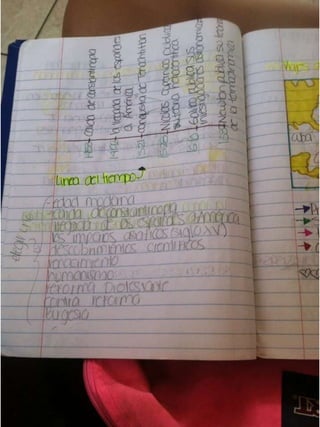 1453 Caida de constantinopla
1492 la llegada de los españoles
a America
1521 conquista de tenochtitlan
Nicolas Copernico publica
su teoria Heliocentrica
1610 Galileo publica sus
investigaciones astronomicas
Newton publica su teoria
de la
linea del tiempo
Edad moderna
caida de constantinopla
llegada de los españoles a America
los imperios asiaticos (siglo XV)
descubrimientos cientificos
renacimiento
humanismo
reforma protestante
contra reforma
burgesia
Cuba